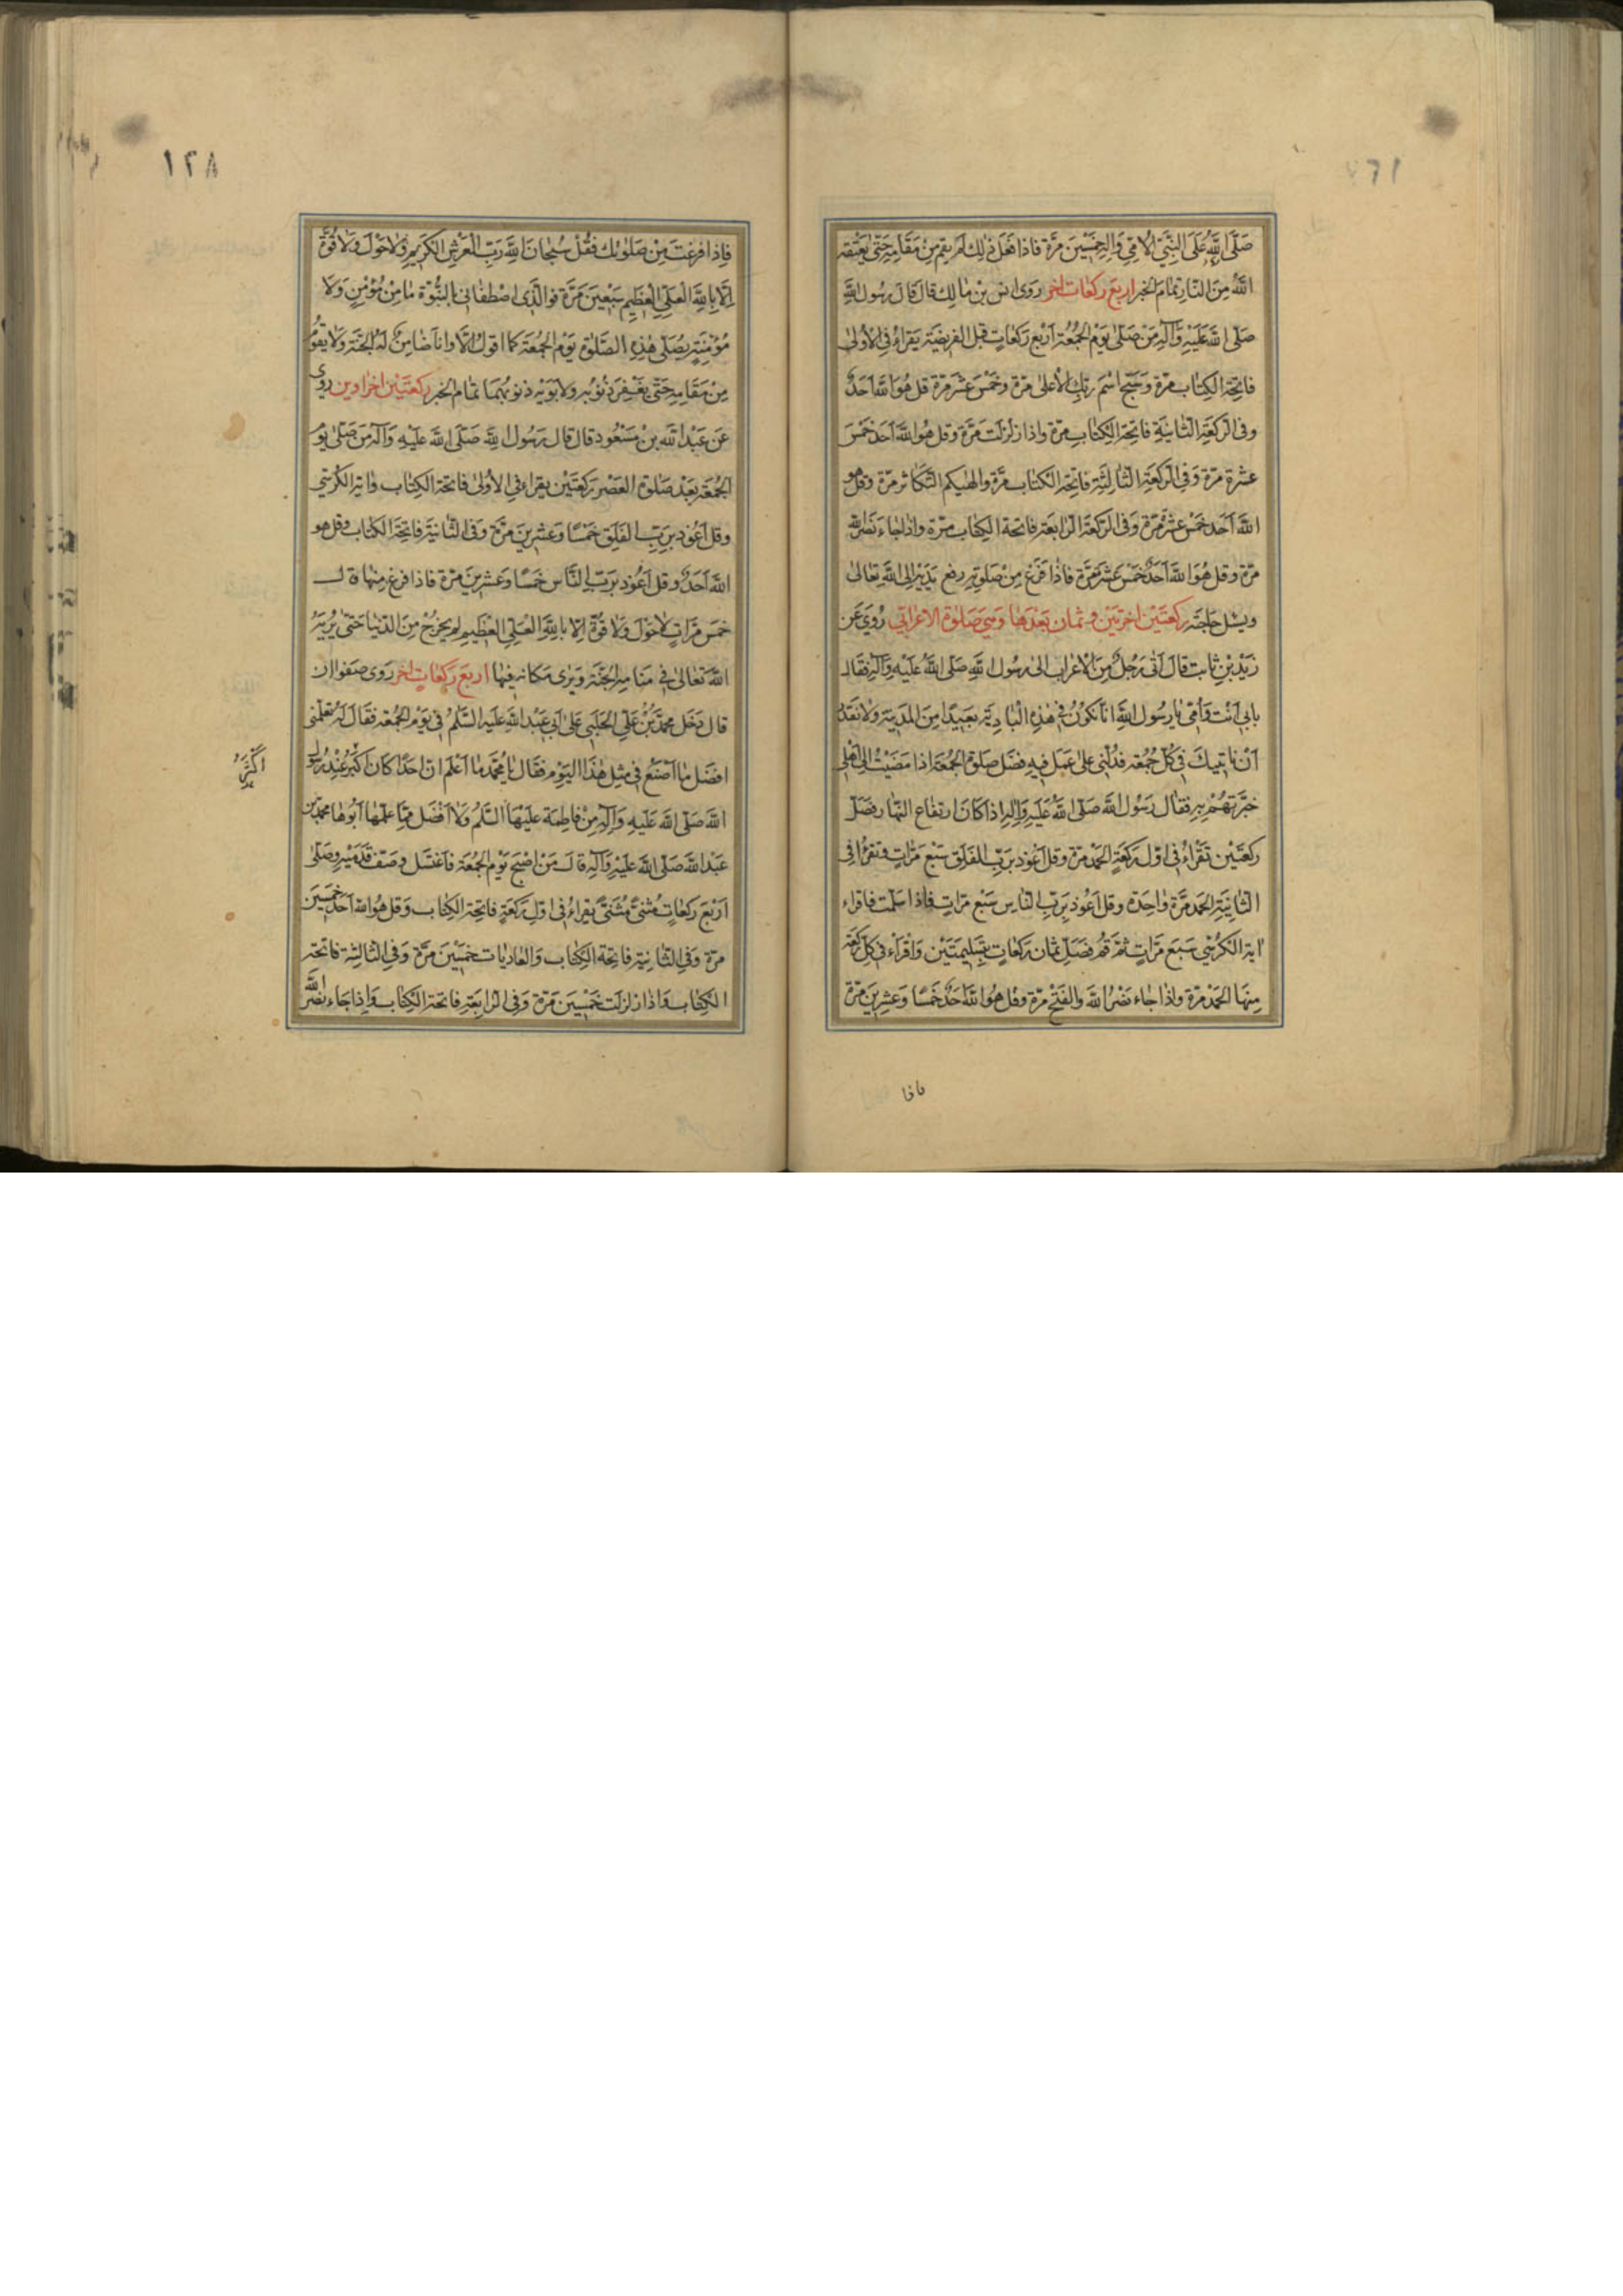 صَلَّى اللَّهُ عَلَى النَّبِيِّ الْأُمِّيِّ وَآلِهِ خَمْسِينَ مَرَّة فاذا فعل ذلك لم يقم مِنْ مَقَامِهِ حَتّى يعتقه
اللَّهُ مِنَ النَّارِ تمام الخبر اربع ركعات اخر روى انس بن مالك قال قال رَسُول اللَّهِ
صَلّى اللَّه عَلَيْهِ وَآلِهِ مَنْ صَلّى يَوْمَ الْجُمُعَة أَرْبَع رَكَعَاتٍ قبل الفريضة يقراء في الأولى
فاتحة الكتاب مرّة وَسَبِّح اسْمَ رَبِّكَ الْأَعْلى مرّة وخَمْسَ عَشْرَ مرّة قل هُوَ اللَّه أَحَدٌ
وفى الركعَة الثانية فاتحة الكتاب مرّة واذا زلزلت مَرَّة وقل هُوَ اللَّه أحد خَمْسَ
عشرة مرّة وَفى الركعَة الثَّالِثَة فاتحة الكتاب مرّة والهيكم التَّكاثر مرّة وقل هو
اللَّه أَحَد خَمْسَ عَشْرَة مرّة وفى الركعَة الرابعَة فاتحة الكتاب مرّة واذا جاء نَصْرُ اللَّه
مرّة وقل هُوَ اللَّه أَحَدٌ خَمْسَ عَشَرَ مَرَّة فاذا فَرَغَ مِنْ صَلوتِهِ رفع يَدَيْهِ إلى اللَّه تعالى
ويسئل حاجته ركعَتَيْن اخرتين وثمان بَعْدَها وَهِيَ صَلوة الاعرابي رُوِيَ عَن
زَيْد بْنِ ثابت قال أتى رَجُلٌ مِنَ الأعراب الى رَسُول اللَّهِ صَلّى اللَّهُ عَلَيْهِ وَآلِهِ فقال
بابى أَنْتَ وَأُمّى يا رسُول اللَّهِ انا نكُونُ فى هذِهِ الْبَادِيَة بَعيدًا مِنَ المدينة ولا نقدر
أن ناتيك فى كُلّ جُمُعَة فدُلّنى على عَمَل فيه فضل صَلوة الْجُمُعَة اذا مَضَيْتُ إلى أهلى
خبّرتهُمْ به فقال رَسُول اللَّه صَلّى اللَّهُ عَلَيْهِ وَآلِهِ اذا كان ارتفاع النّهار فصَلّ
ركعَتَيْن تَقْرَاءُ فى اوّل ركعَة الحَمْد مرّة وقل أعُوذ برَبِّ الفلَق سَبْعَ مَرّاتٍ وَتَقْرَأ في
الثانية الحمد مَرَّة واحِدَة وقل أعُوذ بِرَبِّ الناس سَبْع مَرّاتٍ فاذا سَلّمت فاقراء
اية الكرْسي سَبعَ مَرّاتٍ ثُمَّ قُمْ فَصَلّ ثمان رَكعاتٍ بتَسْلِيمَتَيْن وَاقْرَأْ فى كلّ ركعَة
مِنْهَا الحمد مرّة واذا جاء نَصْرُ اللَّه والفَتْح مرّة وقل هُوَ اللَّه أَحَدٌ خَمْسًا وَعِشرِينَ مرّة
فاذا
١٢٨
فاذا فرغت مِنْ صَلوتك فقُلْ سُبْحانَ اللَّهِ رَبِّ الْعَرْشِ الْكَرِيمِ وَلا حَوْلَ وَلا قُوَّة
إلّا باللَّهِ الْعَلِيِّ الْعَظِيمِ سَبْعِينَ مَرَّة فو الّذى اصْطَفانى بالنُّبُوَّة ما مِنْ مُؤْمِنٍ وَلا
مُؤْمِنَةٍ يُصَلّى هذِهِ الصَّلوة يَوْم الْجُمُعَة كما اقول الّا وانا ضامن لَهُ الجَنَّة وَلا يَقُومُ
مِنْ مَقَامِهِ حَتّى يُغْفَرَ ذُنُوبُهُ ولأبَوَيْهِ ذنوبُهُمَا تمام الخبر ركعَتَيْن اخراوين روى
عَنْ عَبْد اللَّه بنْ مَسْعُود قال قال رَسُول اللَّهِ صَلّى اللَّه عَلَيْهِ وَآلِهِ مَن صَلّى يَوْم
الْجُمُعَة بَعْد صَلوة العَصْر رَكعَتَيْن يقراء فى الأولى فاتحة الكتاب واية الكُرْسِي
وقل أَعُوذ بِرَبِّ الفلَق خَمْسًا وَعِشْرِينَ مَرَّة وَفى الثانية فاتحة الكتاب وقل هو
اللَّه أَحَدٌ وقل أعُوذ بِرَبِّ النَّاس خَمسًا وَعِشْرِينَ مَرّة فاذا فرغ مِنْها قال
خمسَ مَرّاتٍ لا حَوْلَ وَلا قُوَّة إلّا باللَّهِ الْعَلِيِّ الْعَظِيمِ لم يخرُجْ مِنَ الدنْيا حَتّى يُرِيَهُ
اللَّه تعالى فى مَنامِهِ الْجَنَّة وَيَرى مَكانه فيها اربع رَكَعَاتٍ اخر روى صفوان
قال دَخَل محمّد بْنُ عَلِيّ الحَلَبِي عَلى أَبى عَبْد اللَّه عَلَيْهِ السَّلمُ فى يَوْم الجُمُعَة فقال لَهُ تعلّمنى
افضَل ما اصْنَعُ فى مِثْل هذا اليَوْم فقال يا محَمّد ما أعْلَم ان احَدًا كان أكبَرَ عِنْد رسُول
اللَّه صَلّى اللَّه عَلَيْهِ وَآلِهِ مِنْ فاطِمَة عَلَيْهَا السَّلمُ ولا افْضَل مِمَّا عَلّمَها أَبُوها محَمّد بن
عَبْد اللَّه صَلّى اللَّه عَلَيْهِ وَآلِهِ قال مَنْ اصْبَحَ يَوْمَ الجُمُعَة فاغْتَسَل وصَفَّ قدَمَيْهِ وصَلّى
أَرْبَعَ رَكَعَاتٍ مَثْنى مَثْنى يقراءُ فى أوّل رَكعَة فاتحة الكتاب وَقل هُوَ اللَّه أَحَد خمسين
مرّة وَفى الثانية فاتحة الكتاب وَالعَاديات خمسِينَ مَرَّة وَفى الثالثة فاتحة
الكتاب وَاذا زلزلَت خَمْسِينَ مَرّة وَفى الرَّابِعَة فاتحة الكتاب وَإذا جَاء نَصْرُ اللَّه
أَكْبَرَ